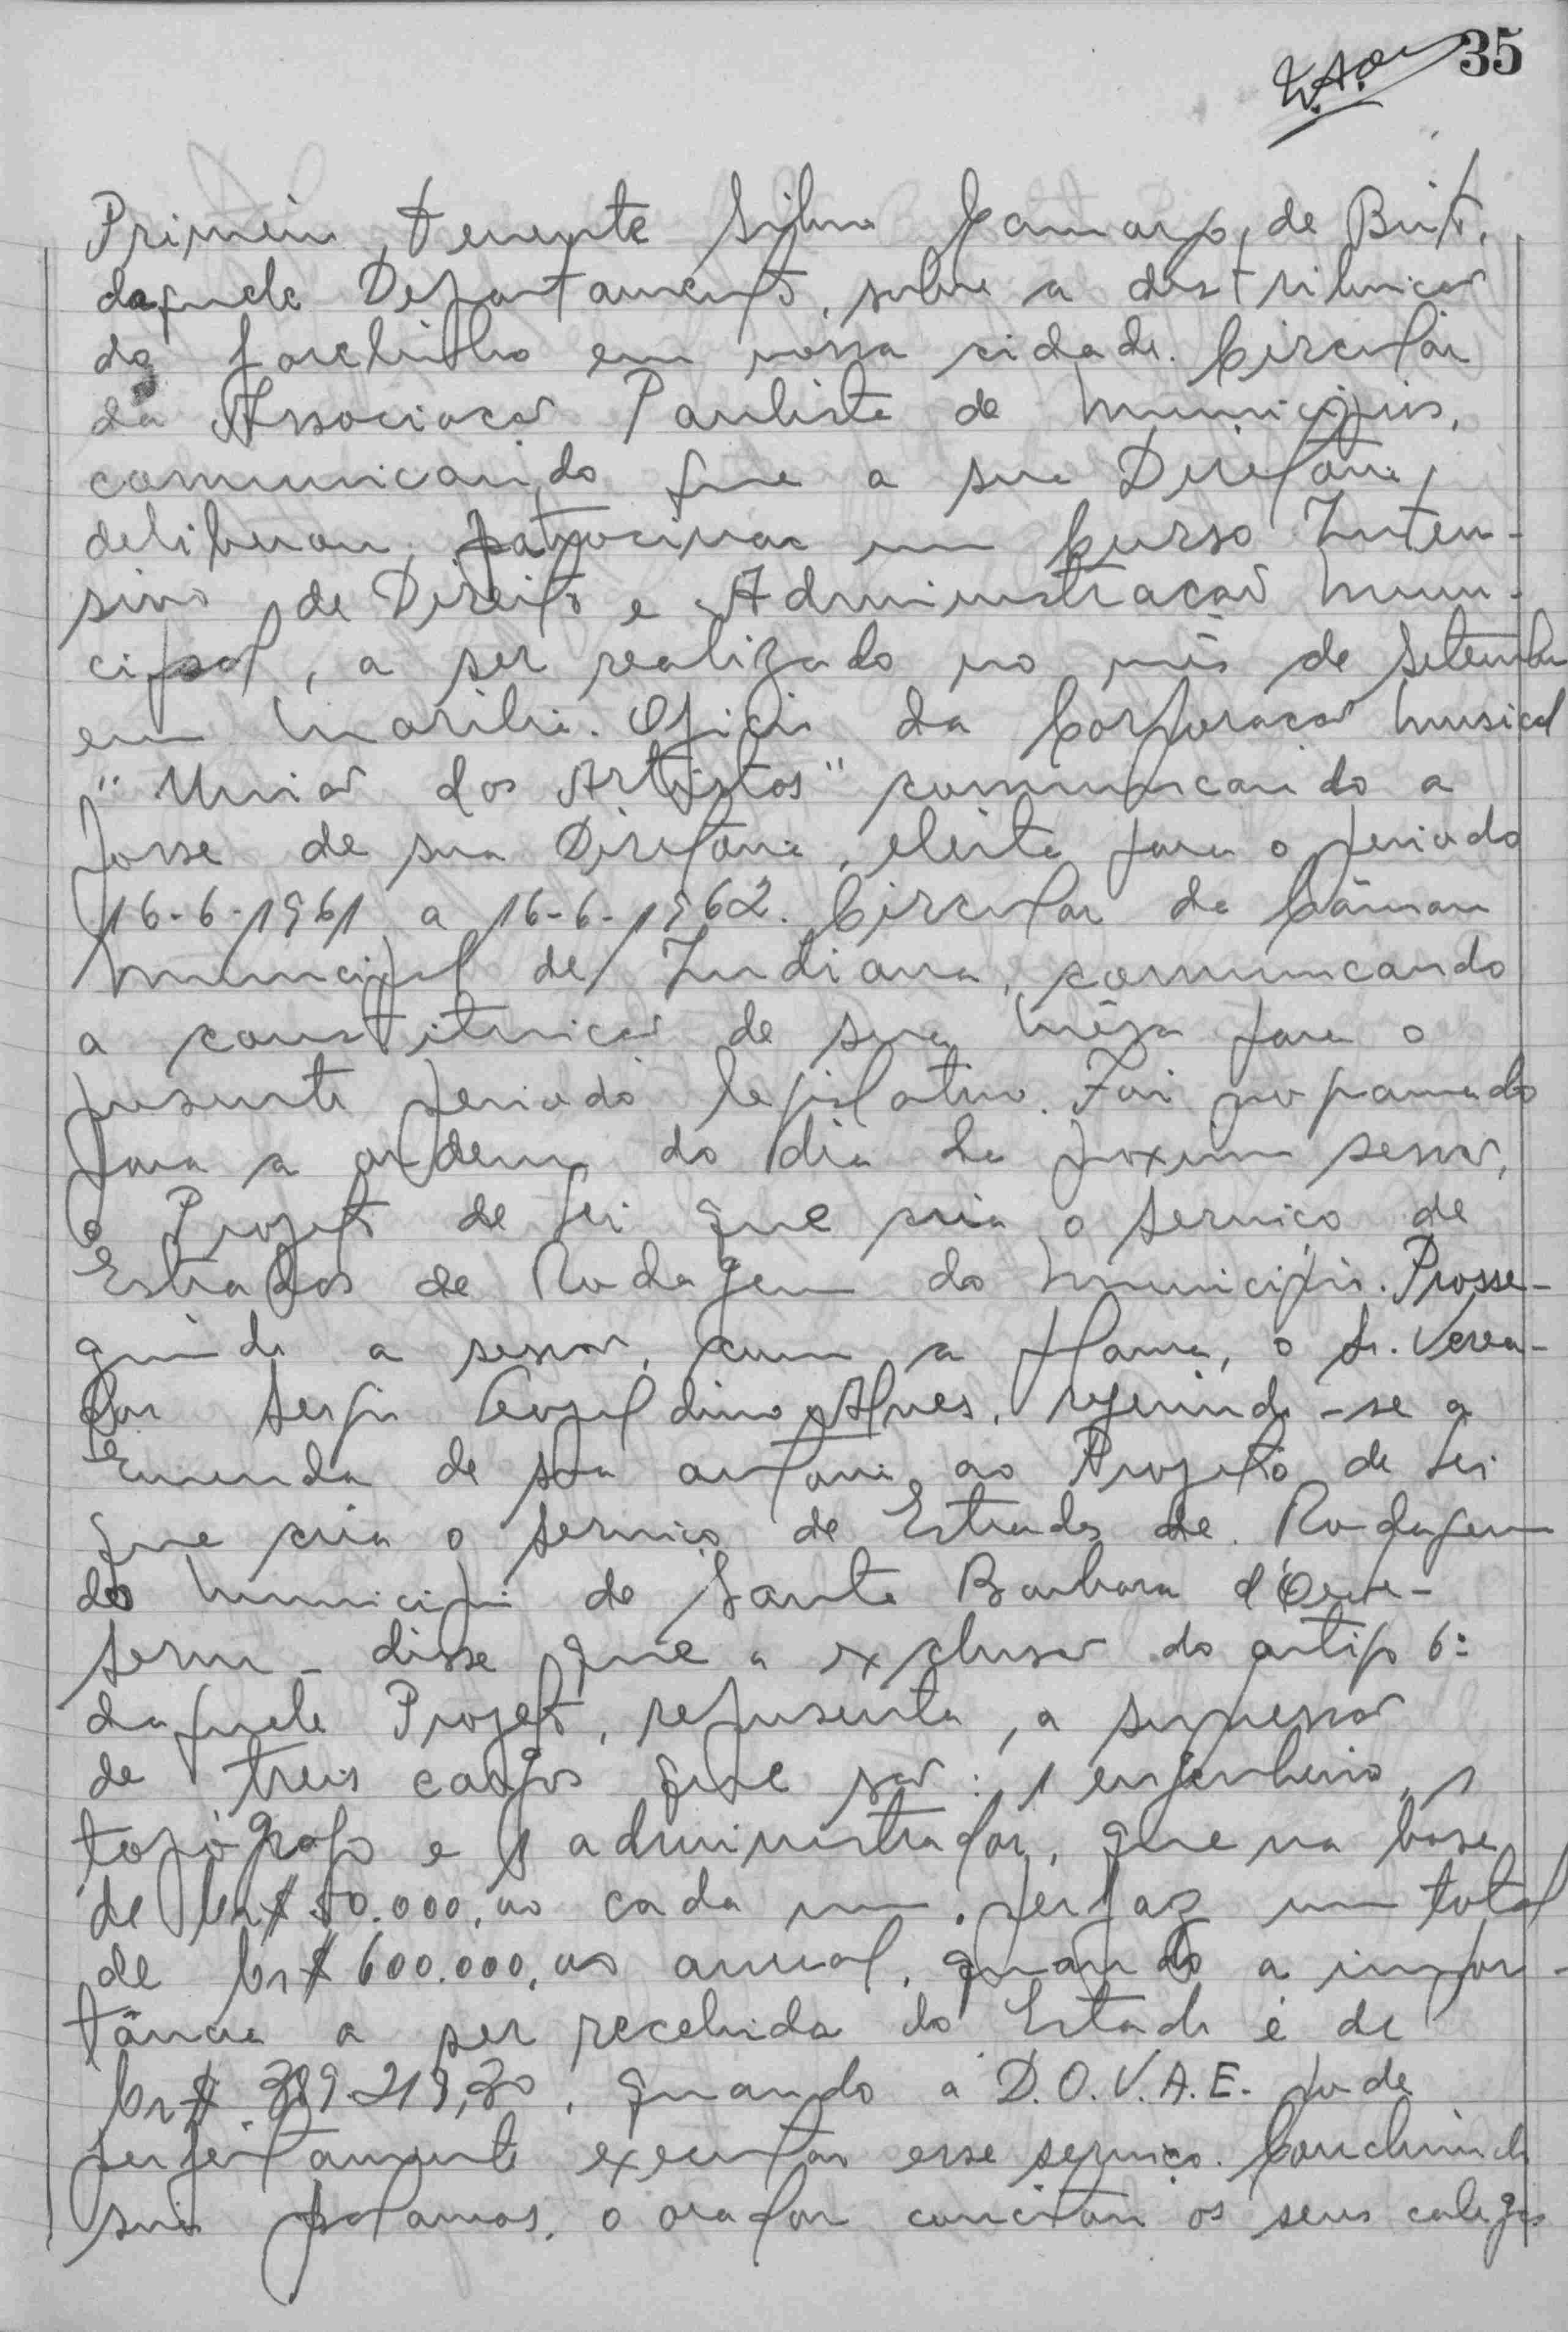 35
Primeiro tenente Silvio Camargo de Brito,
daquele Departamento, sobre a distribuicão
do joelhinho em nossa cidade. Circular
da Associacão Paulista de Municipios,
comunicando que a sua Diretoria,
deliberou patrocinar um Curso Inten-
sivo de Direito e Administracão Muni-
cipal, a ser realizado no mês de Setembro
em Marilia. Oficio da Corporacão Musical
"União dos Artistas" comunicando a
posse de sua Diretoria, eleita para o periodo
16-6-1961 a 16-6-1962. Circular da Câmara
Municipal de Indiana, comunicando
a constituicão de sua Mêsa para o
presente periodo legislativo. Foi programado
para a ordem do dia da proxima sessão,
o Projeto de Lei que cria o Serviço de
Estradas de Rodagem do Municipio. Prosse-
guindo a sessão, com a palavra, o Sr. Verea-
dor Sergio Leopoldino Alves, referindo-se a
Emenda de sua autoria ao Projeto de Lei
que cria o Serviço de Estradas de Rodagem
do Municipio de Santa Barbara d'Oeste-
disse que a exclusão do artigo 6º
daquele Projeto, representa, a supressão
de treis cargos que são: 1 engenheiro, 1
topógrafo e 1 administrador, que na base
de Cr$ 50.000,00 cada um, perfaz um total
de Cr$ 600.000,00 anual, quando a impor-
tância a ser recebida do Estado é de
Cr$ 389.219,30, quando a D.O.V.A.E. pode
perfeitamente executar esse serviço. Concluindo
suas palavras, o orador concitou os seus colegas